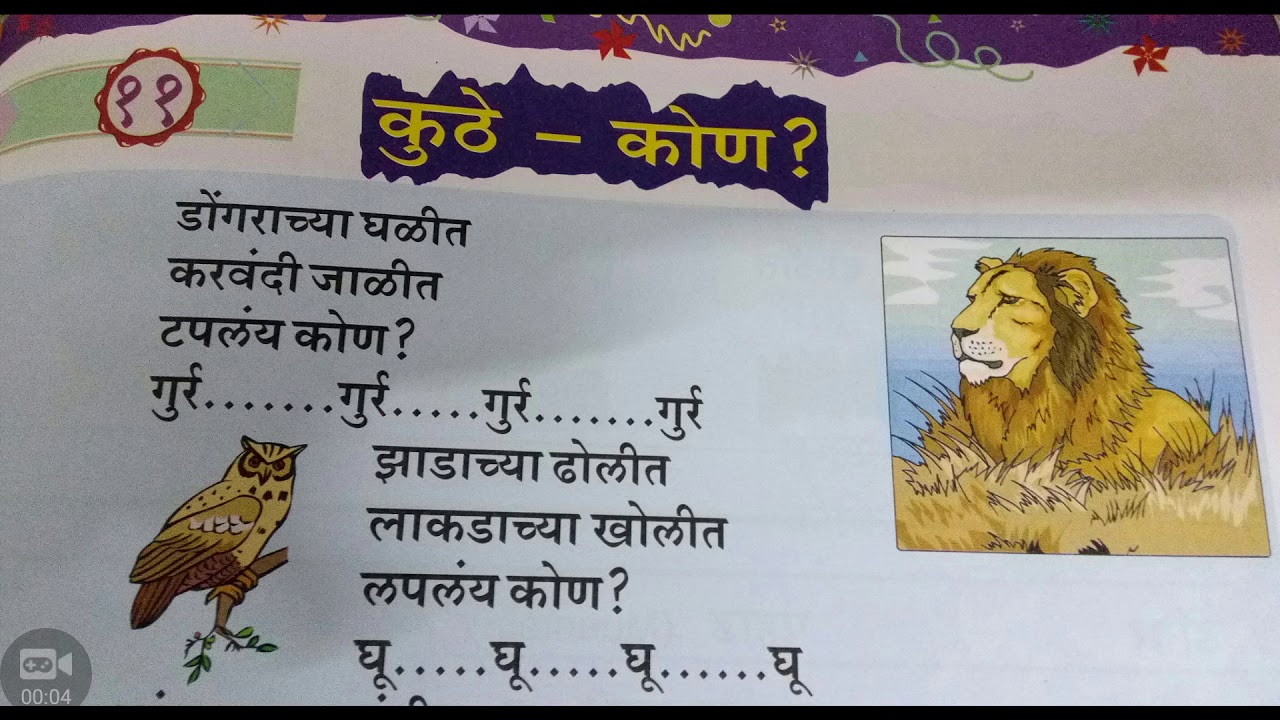 ११
कुठे - कोण?
डोंगराच्या घळीत
करवंदी जाळीत
टपलंय कोण?
गुर्र.......गुर्र.....गुर्र.......गुर्र
झाडाच्या ढोलीत
लाकडाच्या खोलीत
लपलंय कोण?
घू.....घू.....घू......घू
00:04